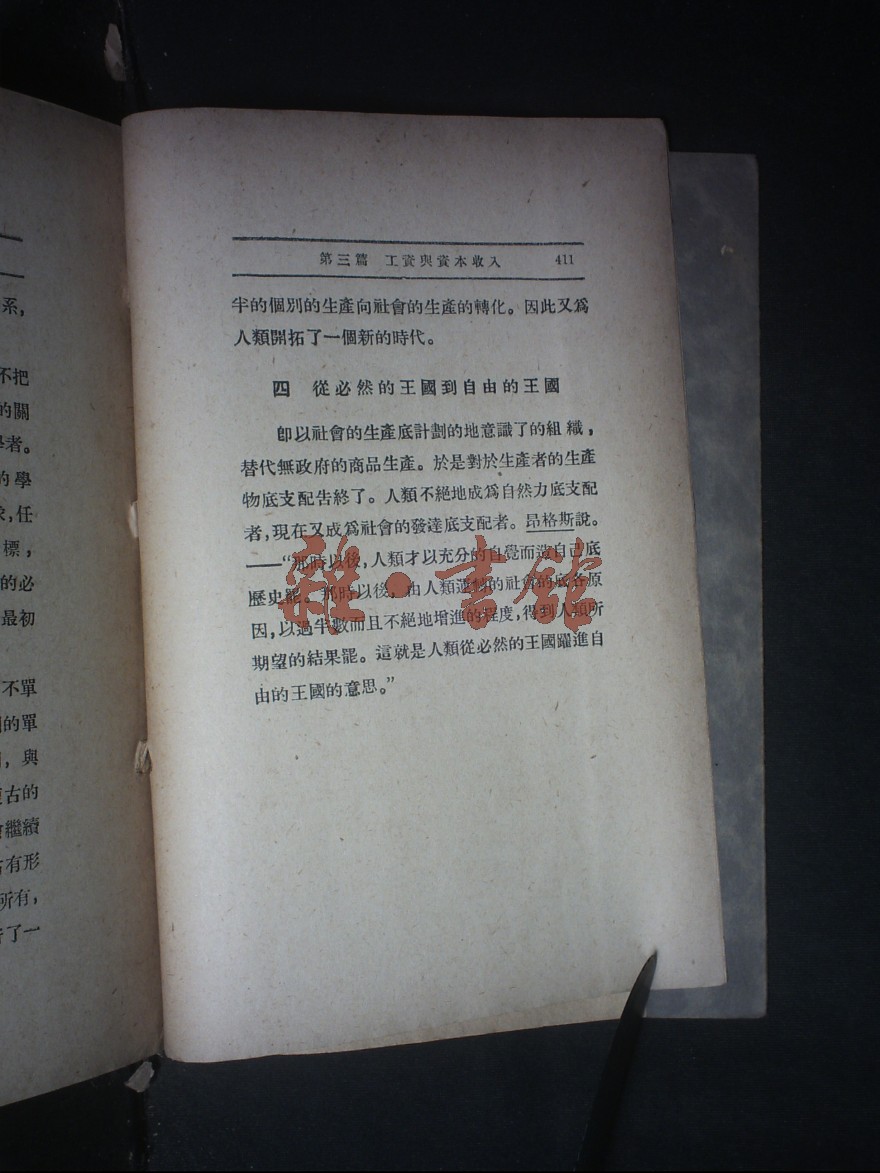 系，
不把
的關
學者。
的學
求，任
標，
的必
最初
不單
的單
，與
復古的
會繼續
古有形
所有，
了一
第三篇 工資與資本收入 411
半的個別的生產向社會的生產的轉化。因此又爲
人類開拓了一個新的時代。
四 從必然的王國到自由的王國
卽以社會的生產底計劃的地意識了的組織，
替代無政府的商品生產。於是對於生產者的生產
物底支配告終了。人類不絕地成爲自然力底支配
者，現在又成爲社會的發達底支配者。昂格斯說。
——“那時以後，人類才以充分的自覺而造自己底
歷史罷。那時以後，由人類運轉的社會的底各原
因，以過半數而且不絕地增進的程度，得到人類所
期望的結果罷。這就是人類從必然的王國躍進自
由的王國的意思。”
雜·書館